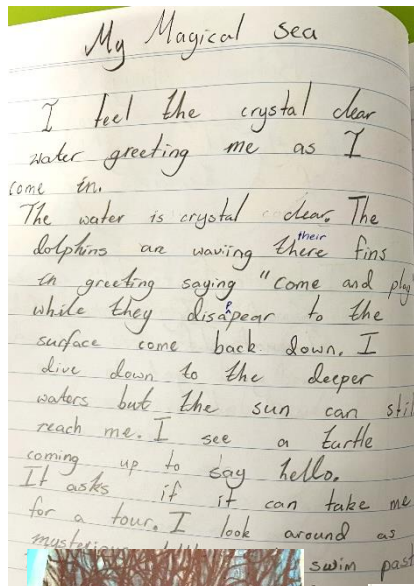 My Magical sea
I feel the crystal clear
water greeting me as I
come in.
The water is crystal clear. The
dolphins are waviing there their fins
in greeting saying "come and play
while they disapear p to the
surface come back down. I
dive down to the deeper
waters but the sun can still
reach me. I see a turtle
coming up to say hello.
It asks if it can take me
for a tour. I look around as
swim past